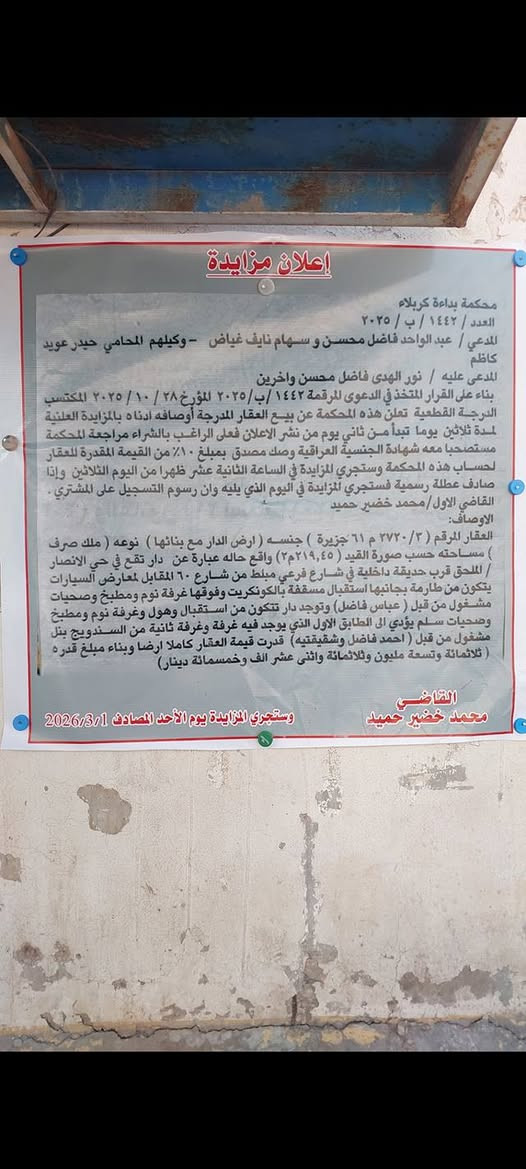 إعلان مزايدة
محكمة بداءة كربلاء
العدد / ١٤٤٢ / ب / ٢٠٢٥
المدعي / عبد الواحد فاضل محسن و سهام نايف غياض - وكيلهم المحامي حيدر عويد
كاظم
المدعى عليه / نور الهدى فاضل محسن واخرين
بناء على القرار المتخذ في الدعوى المرقمة ١٤٤٢ /ب/ ٢٠٢٥ المؤرخ ٢٨ / ١٠ / ٢٠٢٥ المكتسب
الدرجة القطعية تعلن هذه المحكمة عن بيع العقار المدرجة أوصافه ادناه بالمزايدة العلنية
لمدة ثلاثين يوما تبدأ من ثاني يوم من نشر الاعلان فعلى الراغب بالشراء مراجعة المحكمة
مستصحبا معه شهادة الجنسية العراقية وصك مصدق بمبلغ ١٠٪ من القيمة المقدرة للعقار
لحساب هذه المحكمة وستجري المزايدة في الساعة الثانية عشر ظهرا من اليوم الثلاثين وإذا
صادف عطلة رسمية فستجري المزايدة في اليوم الذي يليه وان رسوم التسجيل على المشتري .
القاضي الاول/محمد خضير حميد
الاوصاف:
العقار المرقم ( ٢٧٢٠/٣ م ٦١ جزيرة ) جنسه ( ارض الدار مع بنائها ) نوعه ( ملك صرف
) مساحته حسب صورة القيد (٢١٩,٤٥م٢) واقع حاله عبارة عن دار تقع في حي الانصار
/ الملحق قرب حديقة داخلية في شارع فرعي مبلط من شارع ٦٠ المقابل لمعارض السيارات
يتكون من طارمة بجانبها استقبال مسقفة بالكونكريت وفوقها غرفة نوم ومطبخ وصحيات
مشغول من قبل (عباس فاضل) وتوجد دار تتكون من استقبال وهول وغرفة نوم ومطبخ
وصحيات سلم يؤدي الى الطابق الاول الذي يوجد فيه غرفة وغرفة ثانية من السندويج بنل
مشغول من قبل ( احمد فاضل وشقيقتيه ) قدرت قيمة العقار كاملا ارضا وبناء مبلغ قدره
( ثلاثمائة وتسعة مليون وثلاثمائة واثنى عشر الف وخمسمائة دينار)
القاضي
محمد خضير حميد
وستجري المزايدة يوم الأحد المصادف 2026/3/1